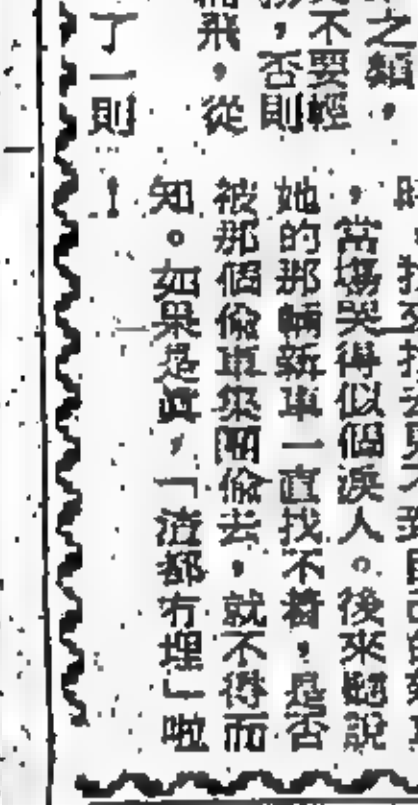 之
不要輕
，否則
飛，從
了一則
，當場哭得似個淚人。後來聽說
她的那輛新車一直找不着，是否
被那個偷車集團偷去，就不得而
知。如果是眞，「渣都冇埋」啦
！